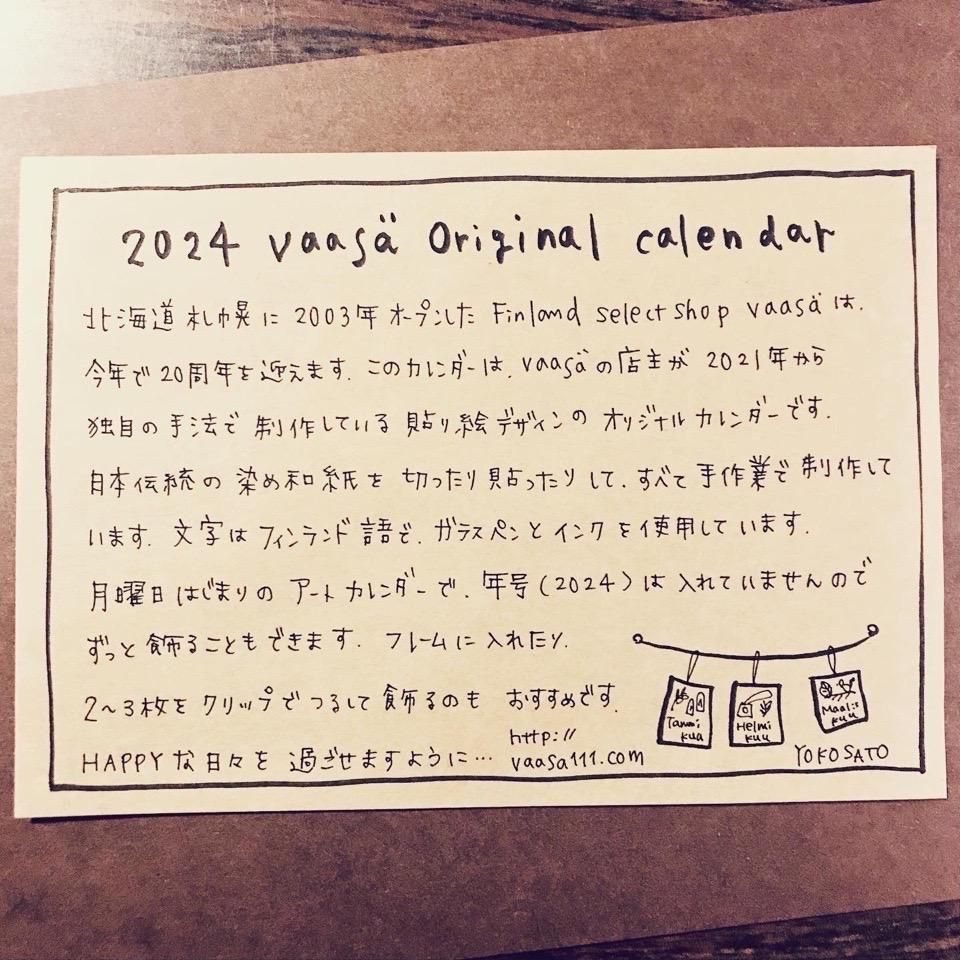 2024 vaasä Original calendar
北海道札幌に2003年オープンした Finland select shop vaasäは、
今年で20周年を迎えます。このカレンダーは、vaasäの店主が2021年から
独自の手法で制作している貼り絵デザインのオリジナルカレンダーです。
日本伝統の染め和紙を切ったり貼ったりして、すべて手作業で制作して
います。文字はフィンランド語で、ガラスペンとインクを使用しています。
月曜日はじまりのアートカレンダーで、年号(2024)は入れていませんので
ずっと飾ることもできます。フレームに入れたり、
2〜3枚をクリップでつるして飾るのも おすすめです。
HAPPYな日々を過ごせますように…
http://
vaasa111.com
Tammi
kuu
Helmi
kuu
Maalis
kuu
YOKO SATO